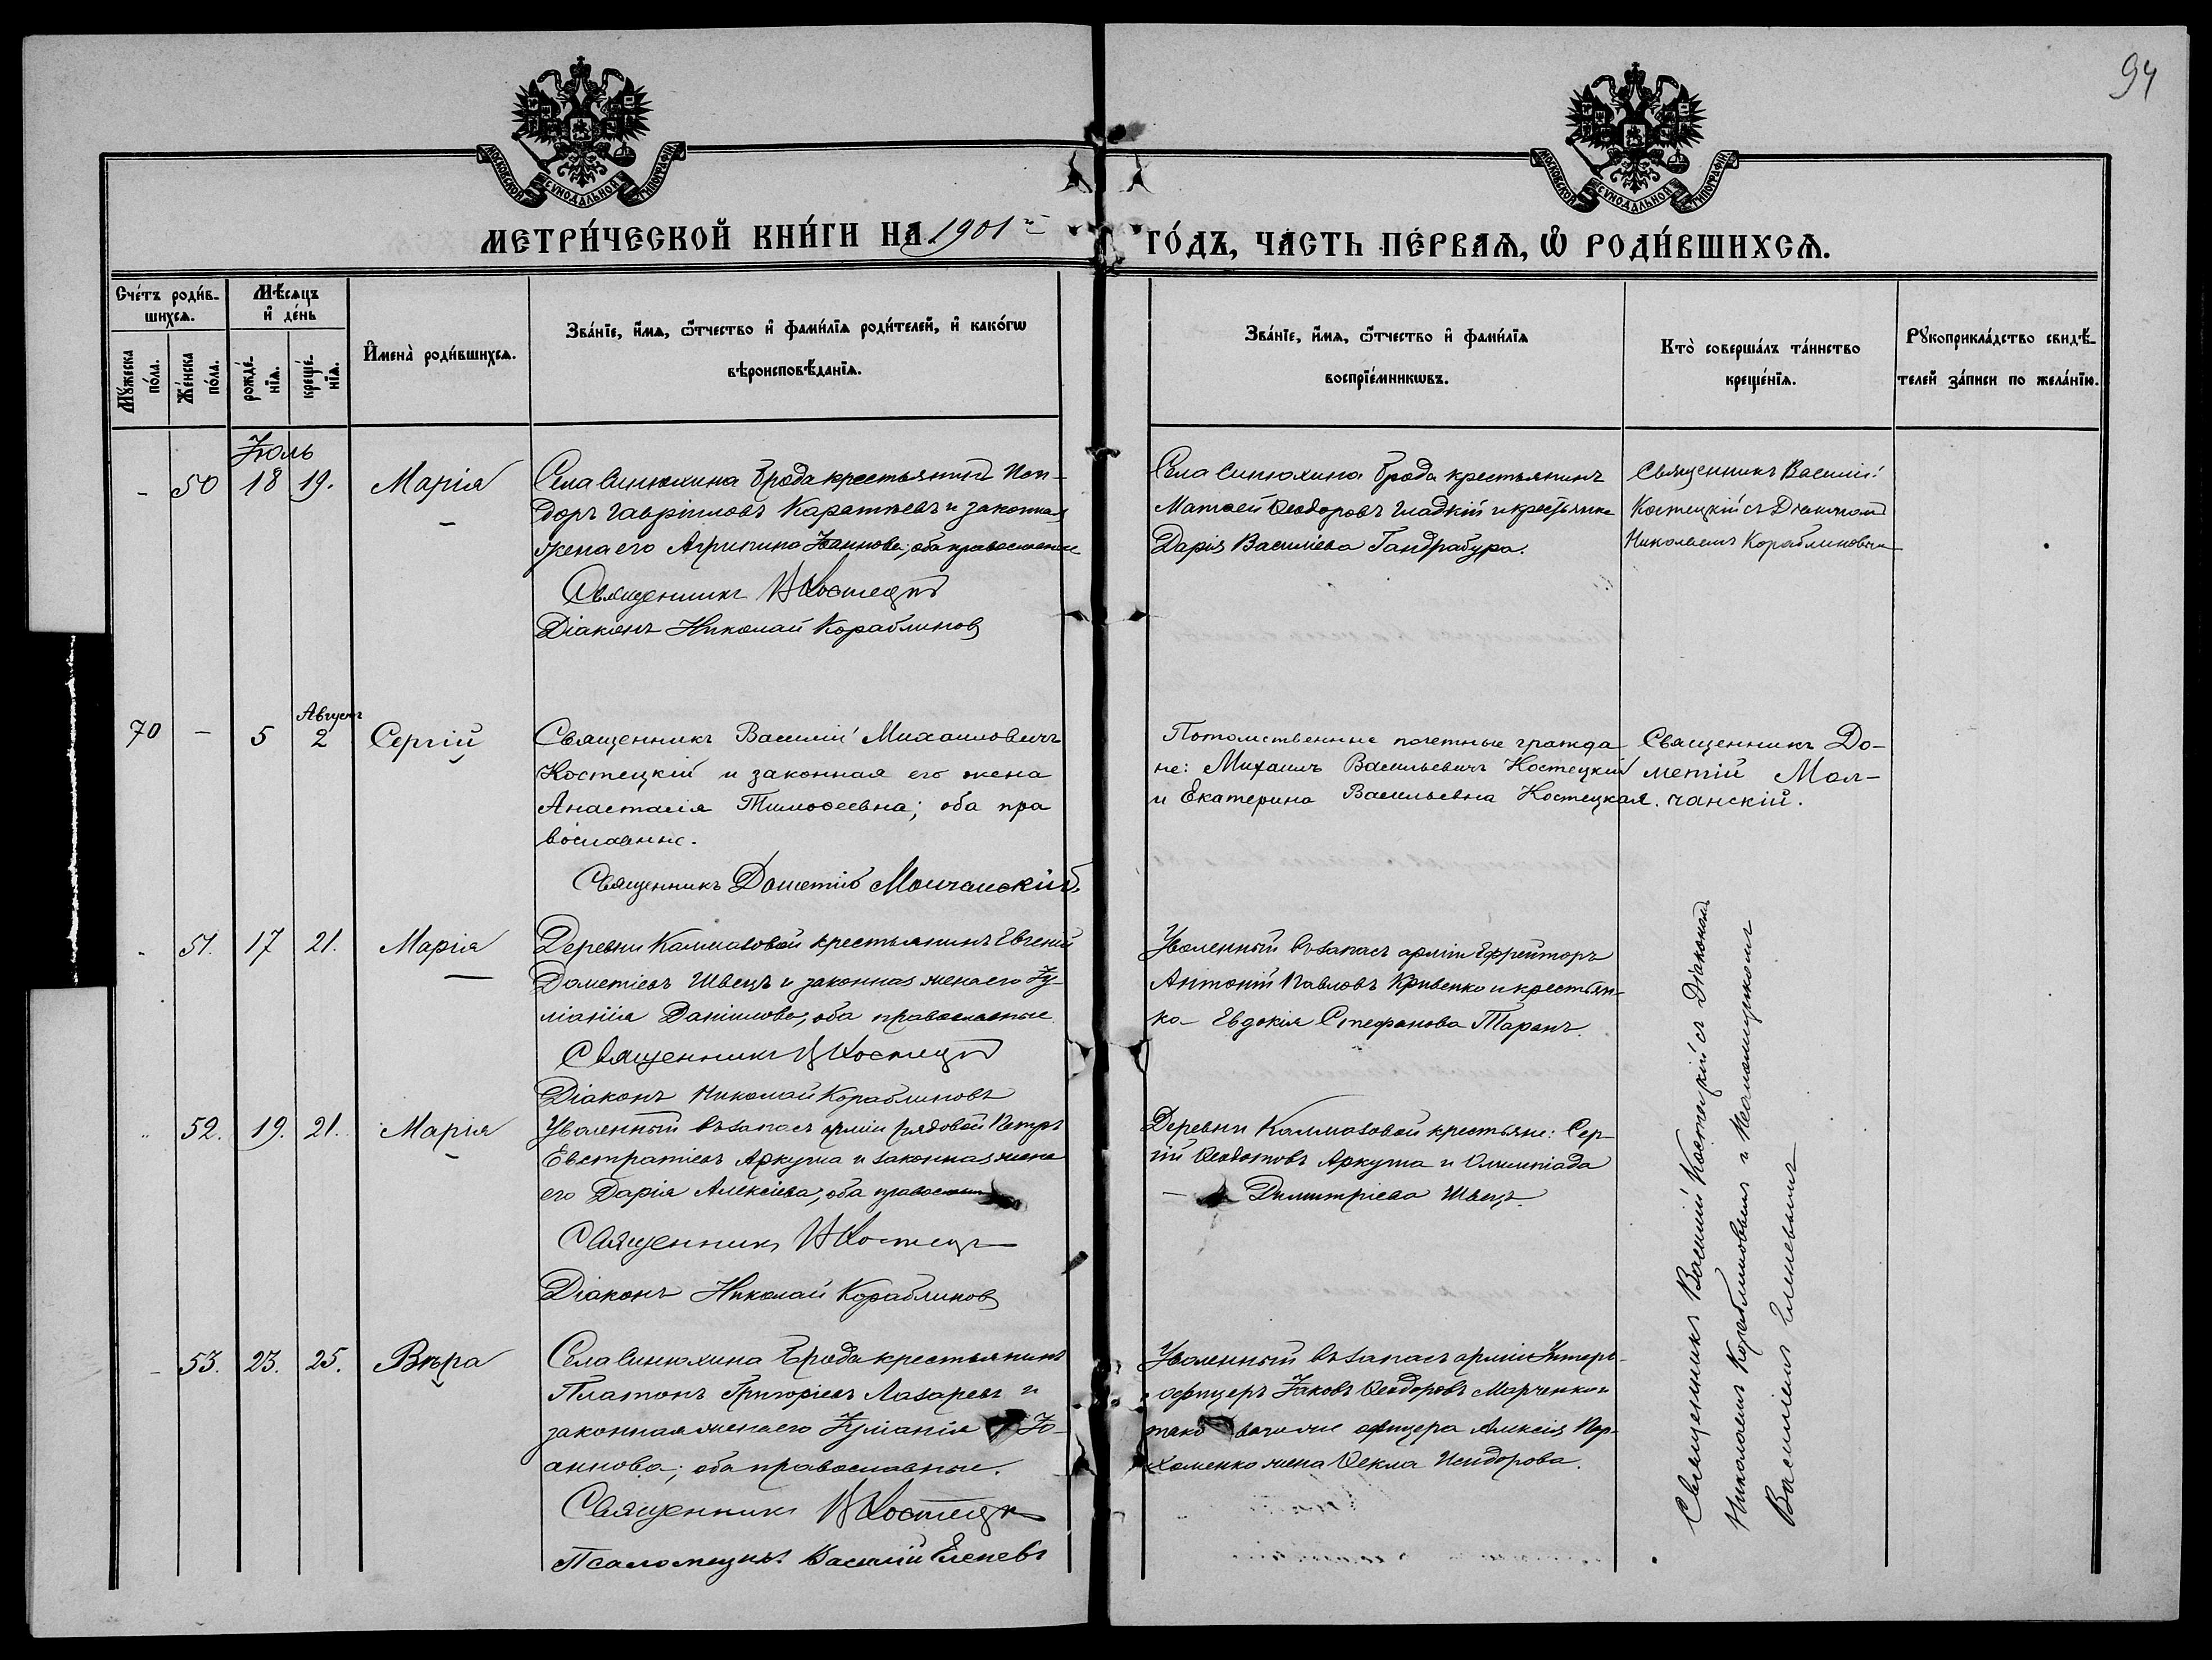 94
МОСКОВСКОЙ СѴНОДАЛЬНОЙ ТИПОГРАФІИ.
МОСКОВСКОЙ СѴНОДАЛЬНОЙ ТИПОГРАФІИ.
МЕТРИ́ЧЕСКОЙ КНИ́ГИ НА 1901й ГО́ДЪ, ЧАСТЬ ПЕ́РВАѦ, Ѡ҆ РОДИ́ВШИХСѦ.
Сче́тъ роди́в-
шихсѧ.
Мꙋжеска по́ла.
Же́нска по́ла.
Мѣ́сѧцъ и҆ де́нь
рожде́-
нїѧ.
креще́-
нїѧ.
И҆мена̀ роди́вшихсѧ.
Зва́нїе, и҆́мѧ, ѻ҆́тчество и҆ фами́лїѧ роди́телей, и҆ како́гѡ
вѣроисповѣ́данїѧ.
Зва́нїе, и҆́мѧ, ѻ҆́тчество и҆ фами́лїѧ
воспрїе́мникѡвъ.
Кто̀ соверша́лъ та́инство
креще́нїѧ.
Рꙋкоприкла́дство свидѣ́-
телей за́писи по жела́нїю.
Іюль
- 50 18 19. Марія
Села Синюхина Брода крестьянинъ Иси-
доръ Гавріиловъ Каратѣевъ и законная
жена его Агрипина Іоаннова; оба православные
Священникъ В Костецкій
Діаконъ Николай Кораблиновъ
Села Синюхина Брода крестьянинъ
Матѳей Ѳеодоровъ Гладкій и крестьянка
Дарія Василіева Гандрабура.
Священникъ Василій
Костецкій съ Діакономъ
Николаемъ Кораблиновымъ
Августъ
70 - 5 2 Сергій
Священникъ Василій Михаиловичъ
Костецкій и законная его жена
Анастасія Тимоѳеевна; оба пра
вославные.
Священникъ Дометій Молчанскій
Потомственные почетные гражда
не: Михаилъ Васильевичъ Костецкій
и Екатерина Васильевна Костецкая.
Священникъ До-
метій Мол-
чанскій.
- 51. 17 21. Марія
Деревни Калмазовой крестьянинъ Евгеній
Дометіевъ Швецъ и законная жена его Іу-
ліанія Даніилова; оба православные
Священникъ В Костецкій
Діаконъ Николай Кораблиновъ
Уволенный въ запасъ арміи Ефрейторъ
Антоній Павловъ Кривенко и крестьян-
ка Евдокія Стефанова Таранъ.
52. 19. 21. Марія
Уволенный въ запасъ арміи рядовой Петръ
Евстратіевъ Аркуша и законная жена
его Дарія Алексіева; оба православн
Священникъ В Костецк
Діаконъ Николай Кораблиновъ
Деревни Калмазовой крестьяне: Сер-
гій Ѳедотовъ Аркуша и Олимпіада
Димитріева Швецъ.
- 53. 23. 25. Вѣра
Села Синюхина Брода крестьянинъ
Платонъ Григоріевъ Лазаревъ и
законная жена его Іуліанія Іо-
аннова; оба православные.
Священникъ В Костецк
Псаломщикъ Василій Еленевъ
Уволенный въ запасъ арміи Унтеръ-
офицеръ Іаковъ Ѳеодоровъ Марченко и
офицера Алексія Пар-
хоменко жена Ѳекла Исидорова.
Священникъ Василій Костецкій съ Діакономъ
Николаемъ Кораблиновымъ и Псаломщикомъ
Василіемъ Еленевымъ